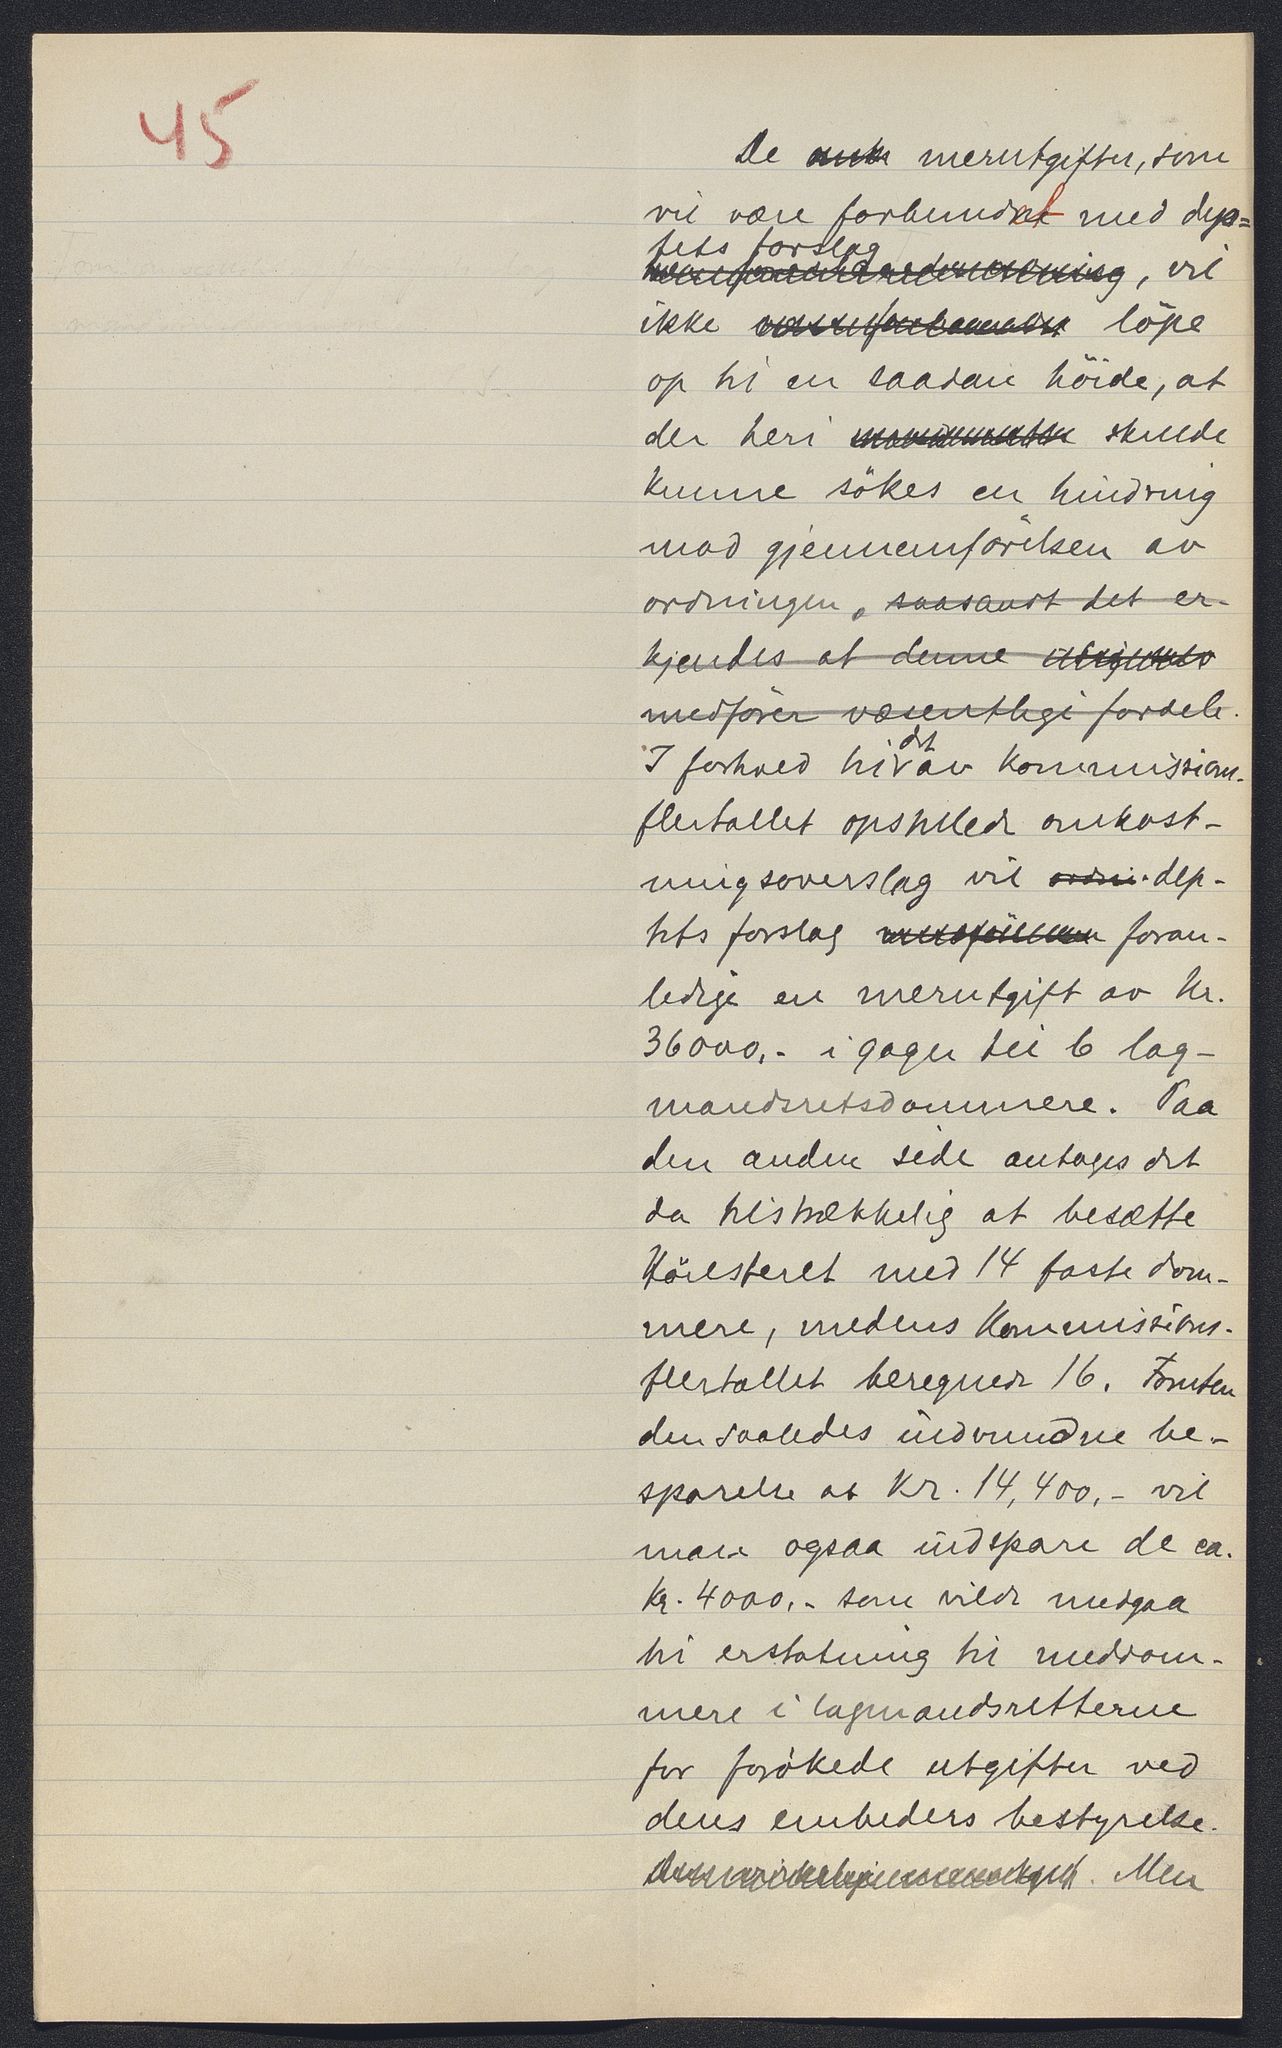 45
De merutgifter, som
vil være forbundet med dep=
tets forslag
, vil
ikke löpe
op til en saadan höide, at
der heri skulde
kunne sökes en hindring
mod gjennemförelsen av
ordningen, saasandt det er-
kjendes at denne
medförer væsentlige fordele.
I forhold til det av Kommissions-
flertallet opstillede omkost-
ningsoverslag vil ordni dep-
tets forslag foran-
ledige en merutgift av Kr.
36000,- i gager til 6 lag-
mandsretsdommere. Paa
den anden side antages det
da tilstrækkelig at besætte
Höiesteret med 14 faste dom-
mere, medens Kommissions-
flertallet beregnede 16. Foruten
den saaledes indvundne be-
sparelse at Kr. 14,400,- vil
man ogsaa indspare de ca.
Kr. 4000,- som vilde medgaa
til erstatning til meddom-
mere i lagmandsretterne
for forökede utgifter ved
deres embeders bestyrelse.
Men